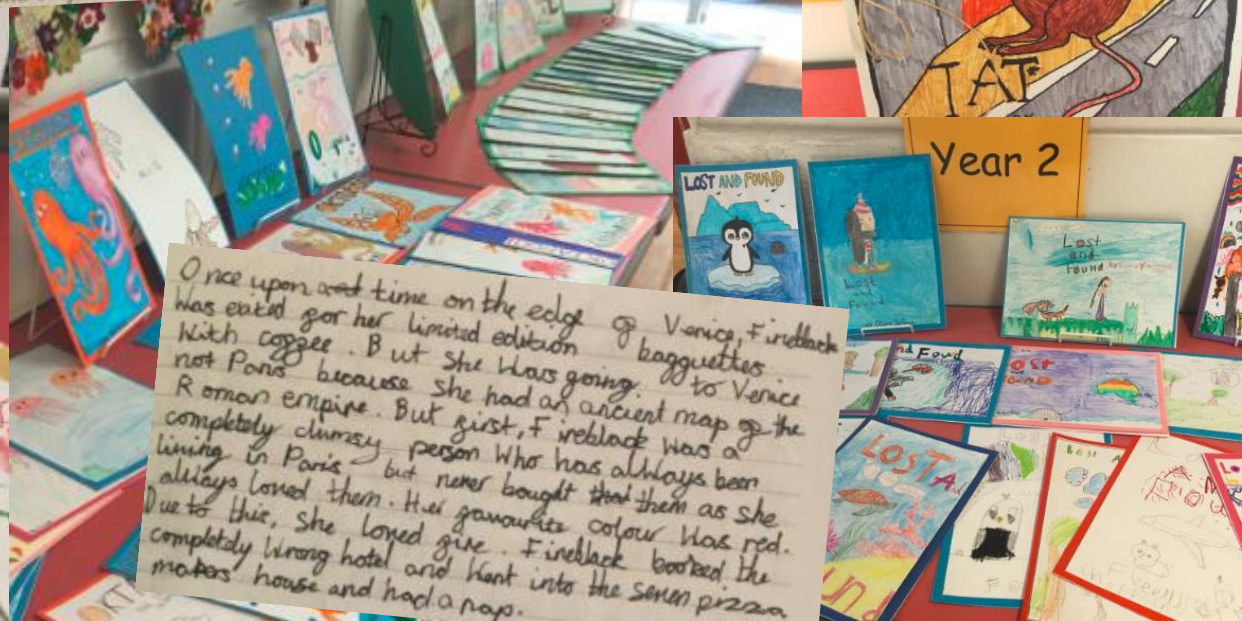 TAT
Year 2
LOST AND FOUND
Lost
and
Found
Lost
and
Found
nd Foud
OST
LOST A
und
Once upon a time on the edge of Venice, Fireblack
Was exited for her limited edition bagguettes
With coffee. But she Was going to Venice
not Paris because she had an ancient map of the
Roman empire. But first, Fireblack was a
completely clumsy person Who has always been
living in Paris but never bought them as she
always loved them. Her favourite colour Was red.
Due to this, she loved fire. Fireblack booked the
completely Wrong hotel and Went into the seven pizza
makers house and had a nap.